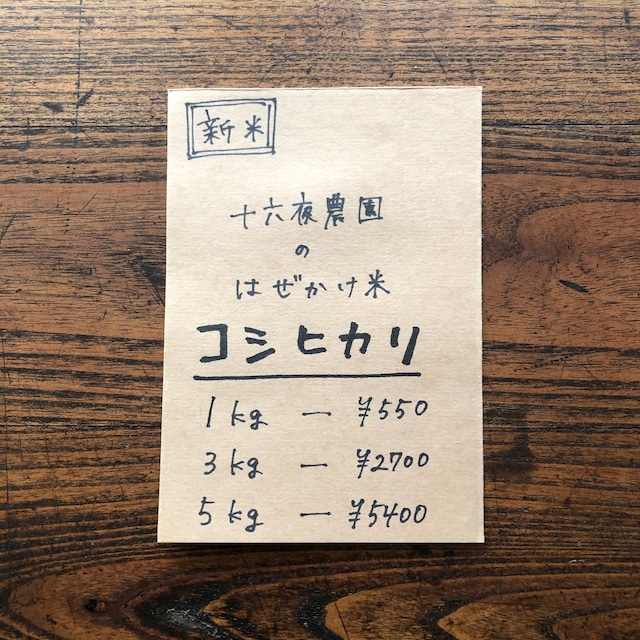 新米
十六夜農園
の
はぜかけ米
コシヒカリ
1kg ー ¥550
3kg ー ¥2700
5kg ー ¥5400